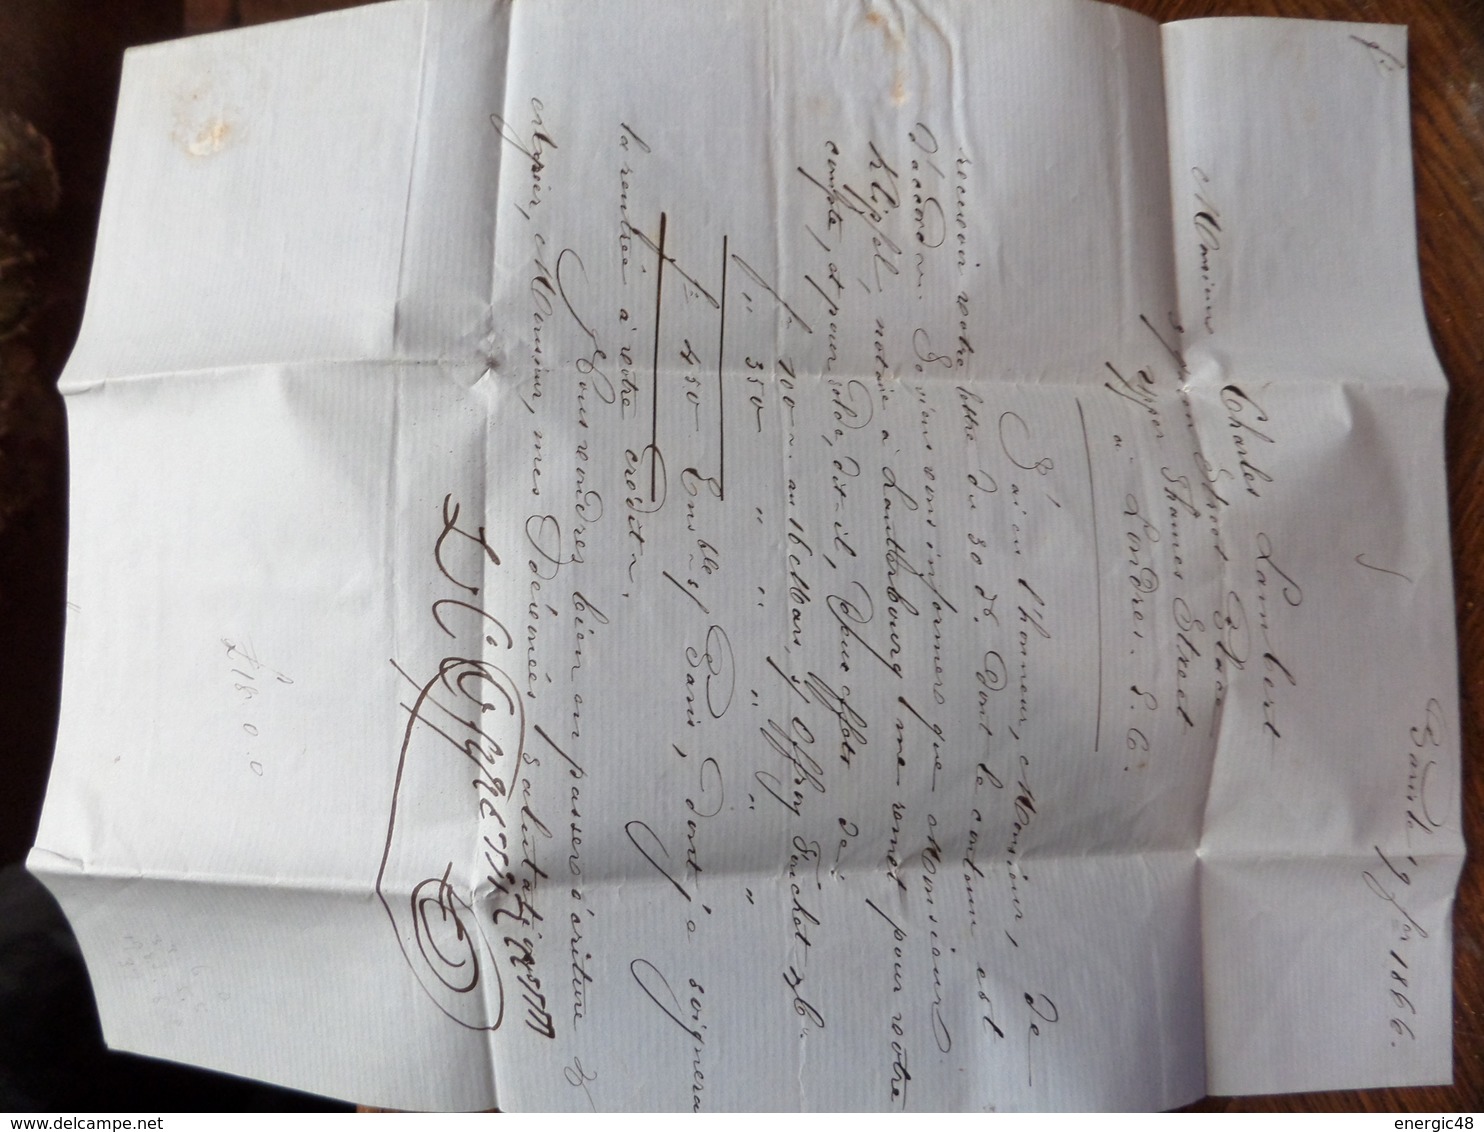 Paris le 19 fer 1866.
Monsieur Charles Lambert
Street Place
Upper Thames Street
à Londres. E. C.
J'ai eu l'honneur, Monsieur, de
recevoir votre lettre du 30 dt. dont le contenu est
d'accord. Je viens vous informer que Monsieur
notaire à Lauterbourg me remet pour votre
compte, et pour solde, dit-il, deux effets de
f. 100 ~ au 16 Mars, s/
f " 350 " " " " "
fs 450. Ensble s/ Paris, dont j'a soignerai
la rentrée à votre crédit.
Vous voudrez bien en passer écriture &
agréer, Monsieur, mes Salutations
£18.0.0
delcampe.net
energic48